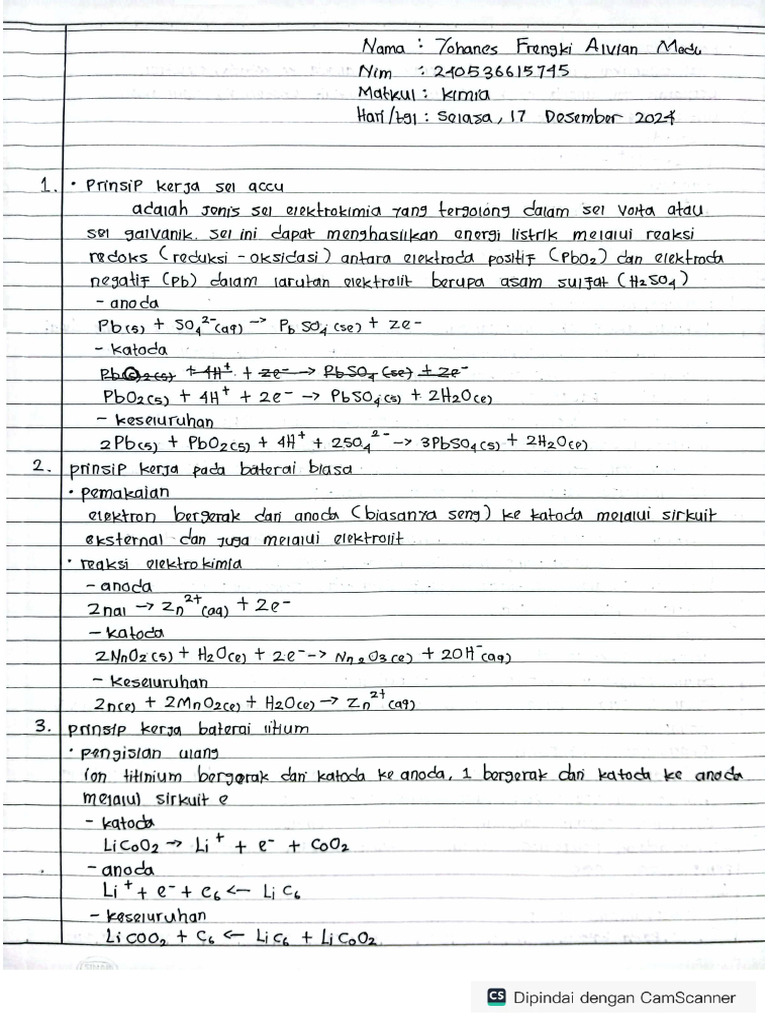 Nama : Yohanes Frengki Alvian Modu
Nim : 240536615745
Matkul : Kimia
Hari/tgl : Selasa, 17 Desember 2024
1. • Prinsip kerja sel accu
adalah jenis sel elektrokimia yang tergolong dalam sel volta atau
sel galvanik. sel ini dapat menghasilkan energi listrik melalui reaksi
redoks (reduksi - oksidasi) antara elektroda positif (PbO2) dan elektroda
negatif (Pb) dalam larutan elektrolit berupa asam sulfat (H2SO4)
- anoda
Pb(s) + SO4²⁻(aq) → PbSO4(se) + 2e-
- katoda
PbO2(s) + 4H⁺ + 2e- → PbSO4(se) + 2e-
PbO2(s) + 4H⁺ + 2e- → PbSO4(s) + 2H2O(e)
- keseluruhan
2Pb(s) + PbO2(s) + 4H⁺ + 2SO4²⁻ → 3PbSO4(s) + 2H2O(e)
2. prinsip kerja pada baterai biasa
• pemakaian
elektron bergerak dari anoda (biasanya seng) ke katoda melalui sirkuit
eksternal dan juga melalui elektrolit
• reaksi elektrokimia
- anoda
2nal → Zn²⁺(aq) + 2e-
- katoda
2NnO2(s) + H2O(e) + 2e- → Nn2O3(e) + 2OH⁻(aq)
- keseluruhan
2n(e) + 2MnO2(e) + H2O(e) → Zn²⁺(aq)
3. prinsip kerja baterai litium
• pengisian ulang
ion titinium bergerak dari katoda ke anoda, 1 bergerak dari katoda ke anoda
melalui sirkuit e
- katoda
LiCoO2 → Li⁺ + e- + CoO2
- anoda
Li⁺ + e- + C6 ← LiC6
- keseluruhan
LiCOO2 + C6 ← LiC6 + LiCoO2
CS Dipindai dengan CamScanner